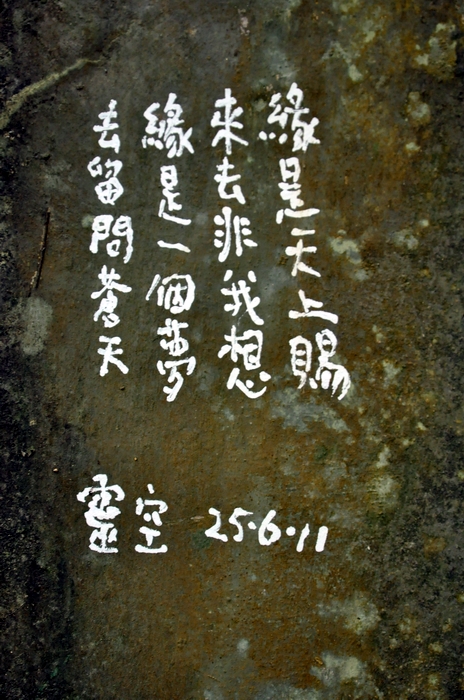 緣是天上賜
來去非我想
緣是一個夢
去留問蒼天
靈空 25·6·11